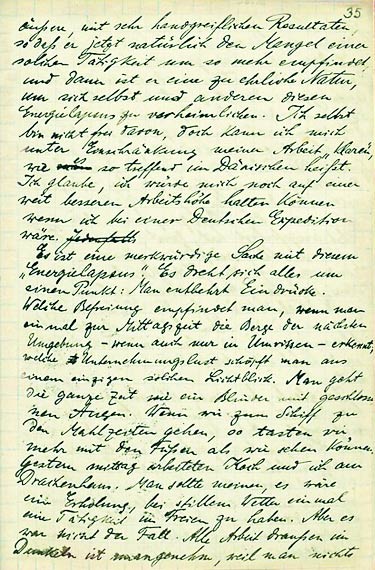 35
außen, mit sehr handgreiflichen Resultaten,
so daß er jetzt natürlich den Mangel einer
solchen Tätigkeit um so mehr empfindet,
und dann ist er eine zu ehrliche Natur,
um sich selbst und anderen diesen
Energielapsus zu verheimlichen. Ich selbst
bin nicht frei davon, doch kann ich mich
unter Einschränkung meiner Arbeit „klaren",
wie so treffend im Dänischen heißt.
Ich glaube, ich würde mich noch auf einer
weit besseren Arbeitshöhe halten können
wenn ich bei einer Deutschen Expedition
wäre. Jedenfalls
Es ist eine merkwürdige Sache mit diesem
„Energielapsus". Es dreht sich alles um
einen Punkt: Man entbehrt Eindrücke.
Welche Befreiung empfindet man, wenn man
einmal zur Mittagszeit die Berge der nächsten
Umgebung – wenn auch nur in Umrissen – erkennt,
welche Unternehmungslust schöpft man aus
einem einzigen solchen Lichtblick. Man geht
die ganze Zeit wie ein Blinder mit geschlosse-
nen Augen. Wenn wir zum Schiff zu
den Mahlzeiten gehen, so tasten wir
mehr mit den Füßen als wir sehen können.
Gestern mittag arbeiteten Koch und ich am
Drachenhaus. Man sollte meinen, es wäre
eine Erholung, bei stillem Wetter einmal
eine Tätigkeit im Freien zu haben. Aber es
war nicht der Fall. Alle Arbeit draußen im
Dunkeln ist unangenehm, weil man nichts